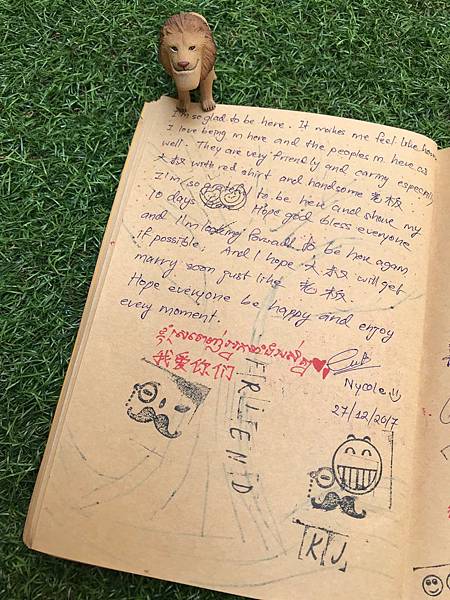 I'm so glad to be here. It makes me feel like home
I love being in here and the peoples in here as
well. They are very friendly and caring especially
大叔 with red shirt and handsome 老板.
I'm so grateful to be here and share my
10 days Hope god bless everyone
and I'm looking forward to be here again
if possible. And I hope 大叔 will get
marry soon just like 老板.
Hope everyone be happy and enjoy
every moment.
我爱你们
Nycole
27/12/2017
FRIEND
KJ